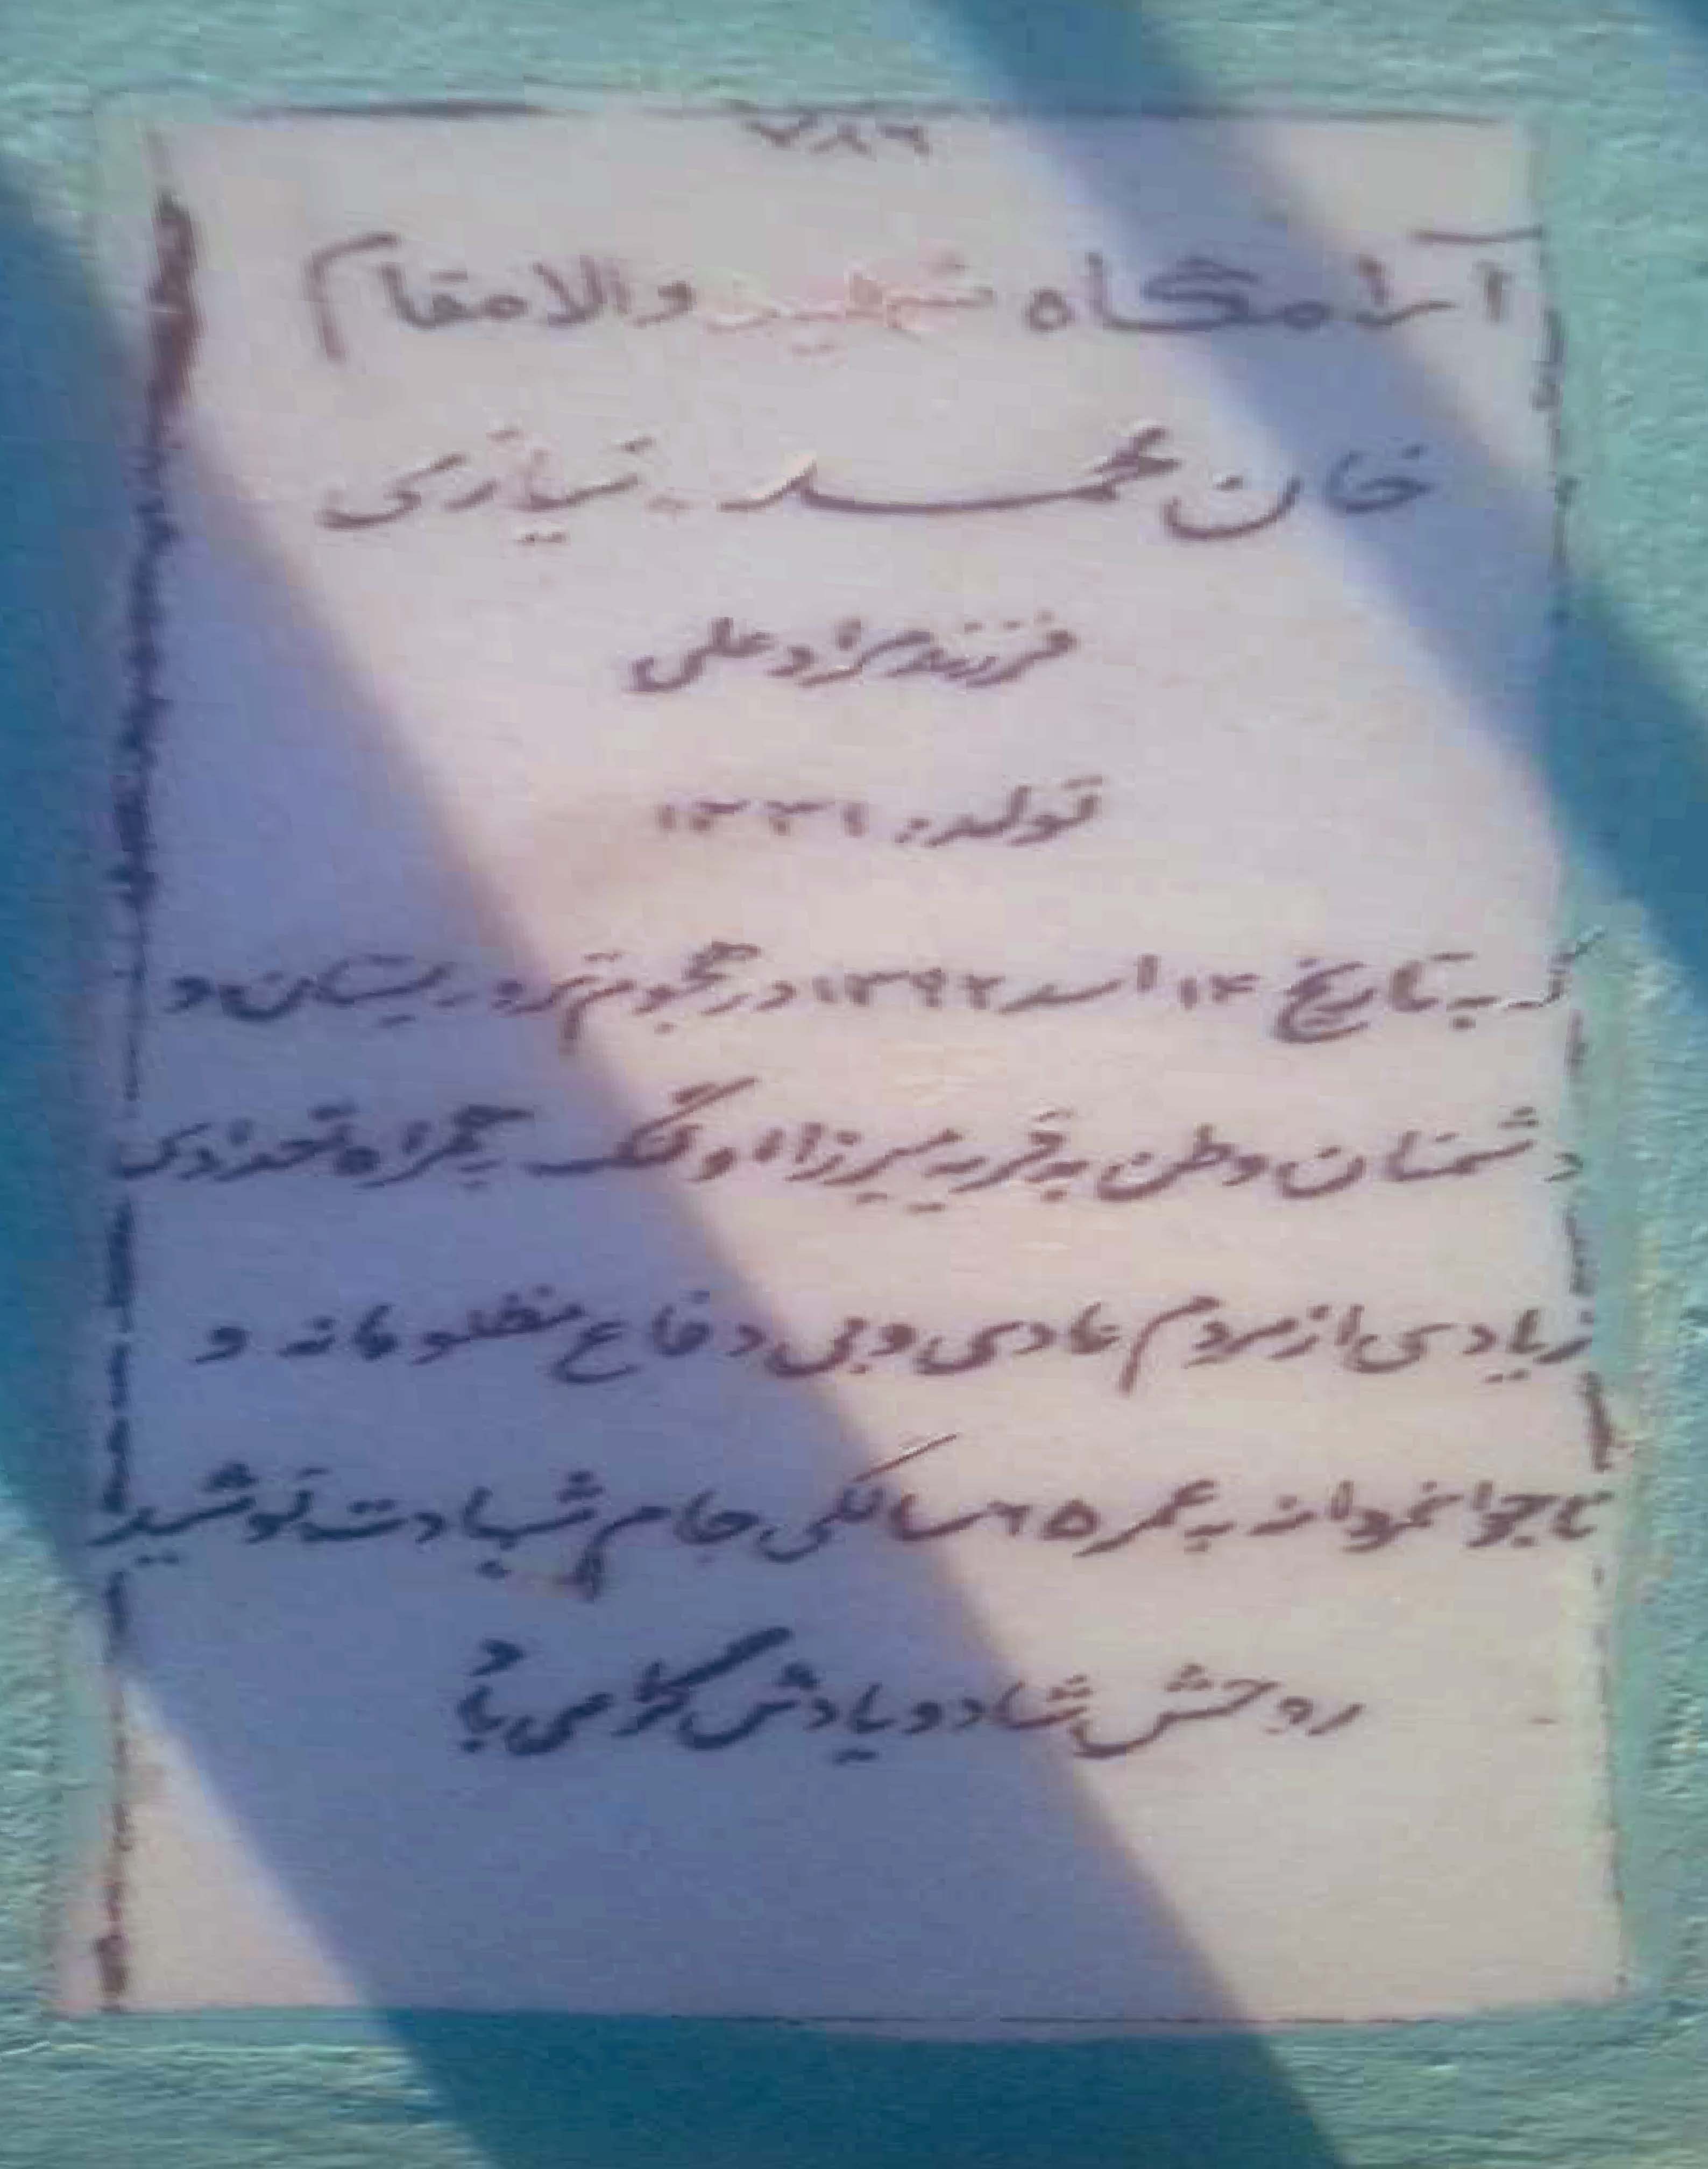 ۷۸۶
آرامگاه شهید والامقام
خان محمد نیازی
فرزند مراد علی
تولد: ۱۳۳۱
که به تاریخ ۱۴ اسد ۱۳۹۲ در هجوم تروریستان و
دشمنان وطن به قریه میرزا اولنگ به همراه تعدادی
زیادی از مردم عادی و بی دفاع مظلومانه و
ناجوانمردانه به عمر ۶۵ سالگی جام شهادت نوشید
روحش شاد و یادش گرامی باد